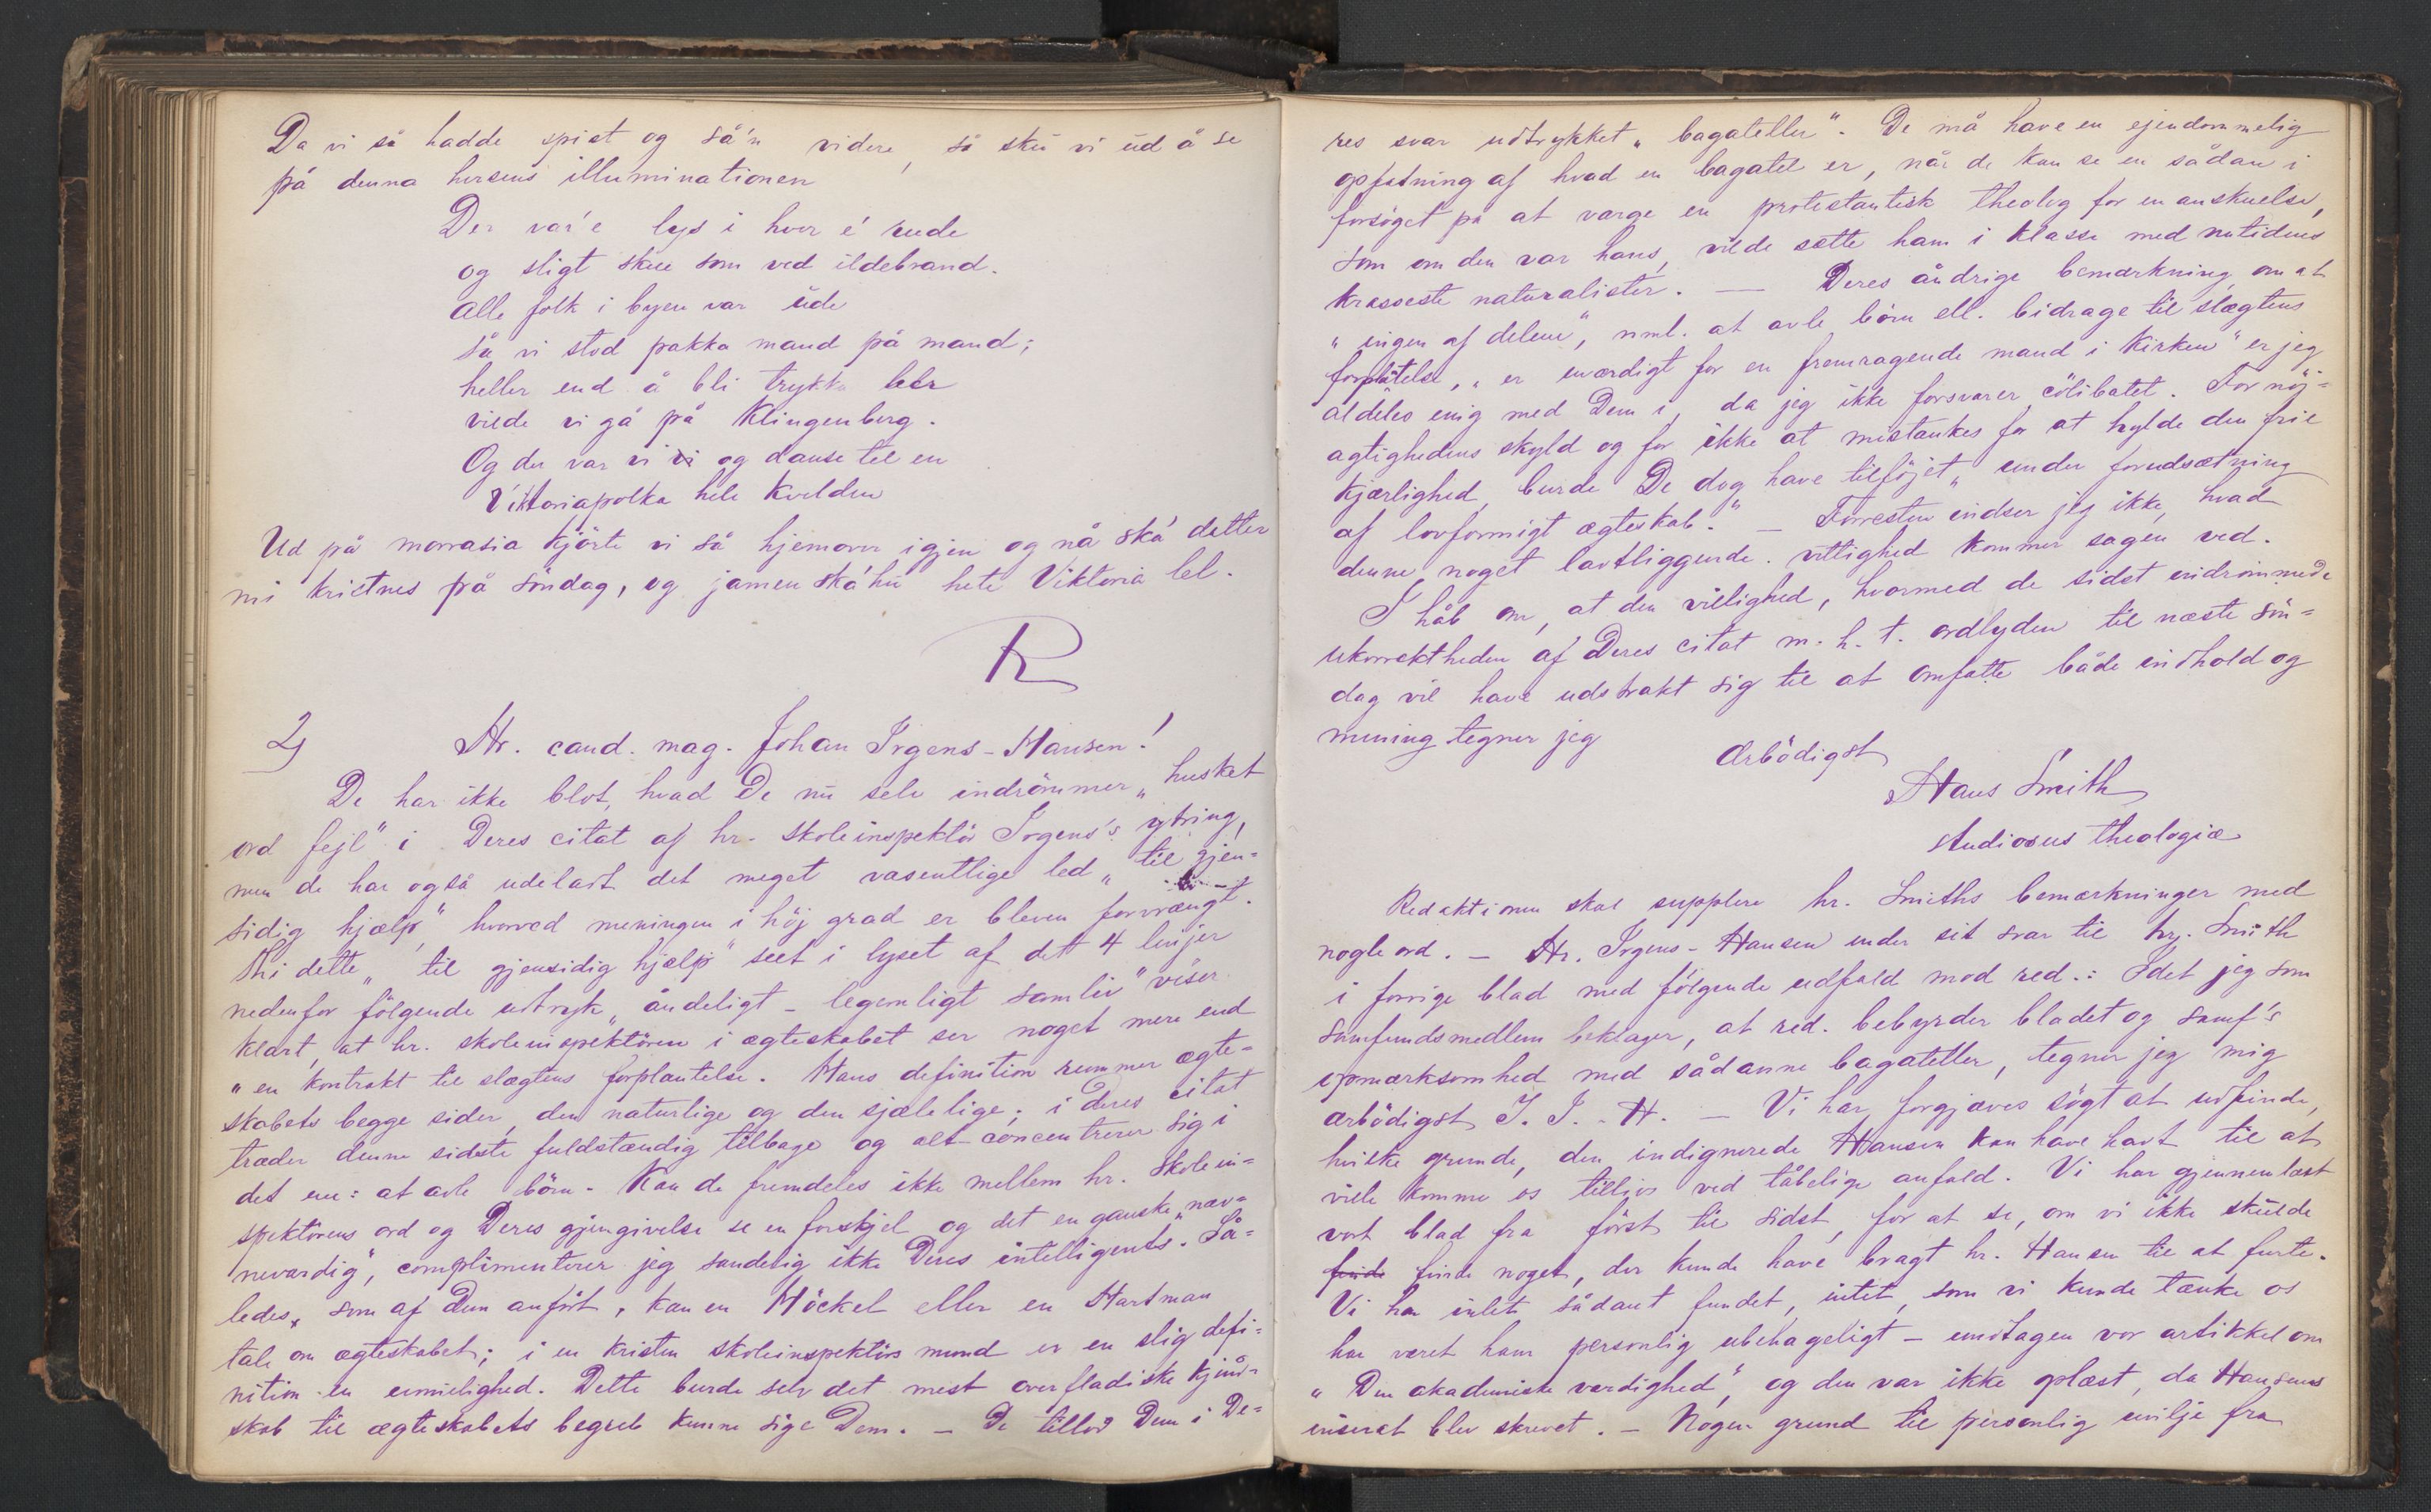 Da vi så hadde spist og så'n videre, så sku vi ud å se
på denna hersens illuminationen
Der var'e lys i hver é rude
og sligt skue som ved ildebrand.
Alle folk i byen var ude
så vi stod pakka mand på mand;
heller end å bli trykka
vilde vi gå på Klingenberg.
Og der var vi vi og danse til en
Viktoriapolka hele kvelden
Ud på morrasia kjörte vi så hjemover igjen og nå ska' datter
mi kristnes på söndag, og jamen ska' hu hete Viktoria lel.
R
2) Hr. cand. mag. Johan Irgens-Hansen!
De har ikke blot, hvad De nu selv indrömmer, "husket
ord fejl" i Deres citat af hr. skoleinspektör Irgens's ytring,
men de har også udeladt det meget væsentlige led "til gjen-
sidig hjælp," hvorved meningen i höj grad er bleven forvrængt.
Thi dette "til gjensidig hjælp" seet i lyset af det 4 linjer
nedenfor fölgende udtryk "åndeligt-legemligt samliv" viser
klart, at hr. skoleinspektören i ægteskabet ser noget mere end
"en kontrakt til slægtens forplantelse. Hans definition rummer ægte-
skabets begge sider, den naturlige og den sjælelige; i deres citat
træder denne sidste fuldstændig tilbage og alt concentrerer sig i
det ene: at avle börn. Kan de fremdeles ikke mellem hr. skolein-
spektörens ord og Deres gjengivelse se en forskjel og det en ganske "næv-
neværdig", complimenterer jeg sandelig ikke Deres intelligents. Så-
ledes, som af Dem anfört, kan en Häckel eller en Hartman
tale om ægteskabet; i en kristen skoleinspektörs mund er en slig defi-
nition en umulighed. Dette burde selv det mest overfladiske kjend-
skab til ægteskabets begreb kunne sige Dem. – De tillod Dem i De-
res svar udtrykket "bagateller". De må have en ejendommelig
opfatning af hvad en bagatel er, når de kan se en sådan i
forsöget på at værge en protestantisk theolog for en anskuelse,
som om den var hans, vilde sætte ham i klasse med nutidens
krasseste naturalister. — Deres åndrige bemærkning, om at
"ingen af delene", nml. at avle börn ell. bidrage til slægtens
forplantelse, "er uværdigt for en fremragende mand i kirken" er jeg
aldeles enig med Dem i, da jeg ikke forsvarer cölibatet. For nöj-
agtighedens skyld og for ikke at mistænkes for at hylde den frie
kjærlighed, burde De dog have tilföjet "under forudsætning
af lovformigt ægteskab." – Forresten indser jeg ikke, hvad
denne, noget lavtliggende vittighed kommer sagen ved.
I håb om, at den villighed, hvormed de sidst indrömmede
ukorrektheden af Deres citat m. h. t. ordlyden til næste sön-
dag vil have udstrakt sig til at omfatte både indhold og
mening tegner jeg
Ærbödigst
Hans Smith
studiosus theologiæ
Redaktionen skal supplere hr. Smiths bemærkninger med
nogle ord. – Hr. Irgens-Hansen ender sit svar til hr. Smith
i forrige blad med fölgende udfald mod red.: Idet jeg som
samfundsmedlem beklager, at red. bebyrder bladet og samf's
opmærksomhed med sådanne bagateller, tegner jeg mig
ærbödigst J. I.-H. – Vi har forgjæves sögt at udfinde,
hvilke grunde, den indignerede Hansen kan have havt til at
ville komme os tillivs ved tåbelige anfald. Vi har gjennemlæst
vort blad fra först til sidst, for at se, om vi ikke skulde
finde finde noget, der kunde have bragt hr. Hansen til at furte.
Vi har intet sådant fundet, intet, som vi kunde tænke os
har været ham personlig ubehageligt – undtagen vor artikkel om
"Den akademiske værdighed", og den var ikke oplæst, da Hansens
inserat blev skrevet. – Nogen grund til personlig uvilje fra